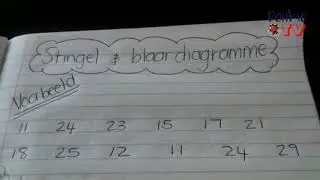 Stingel & blaardiagramme
Voorbeeld
11 24 23 15 17 21
18 25 12 11 24 29
TV